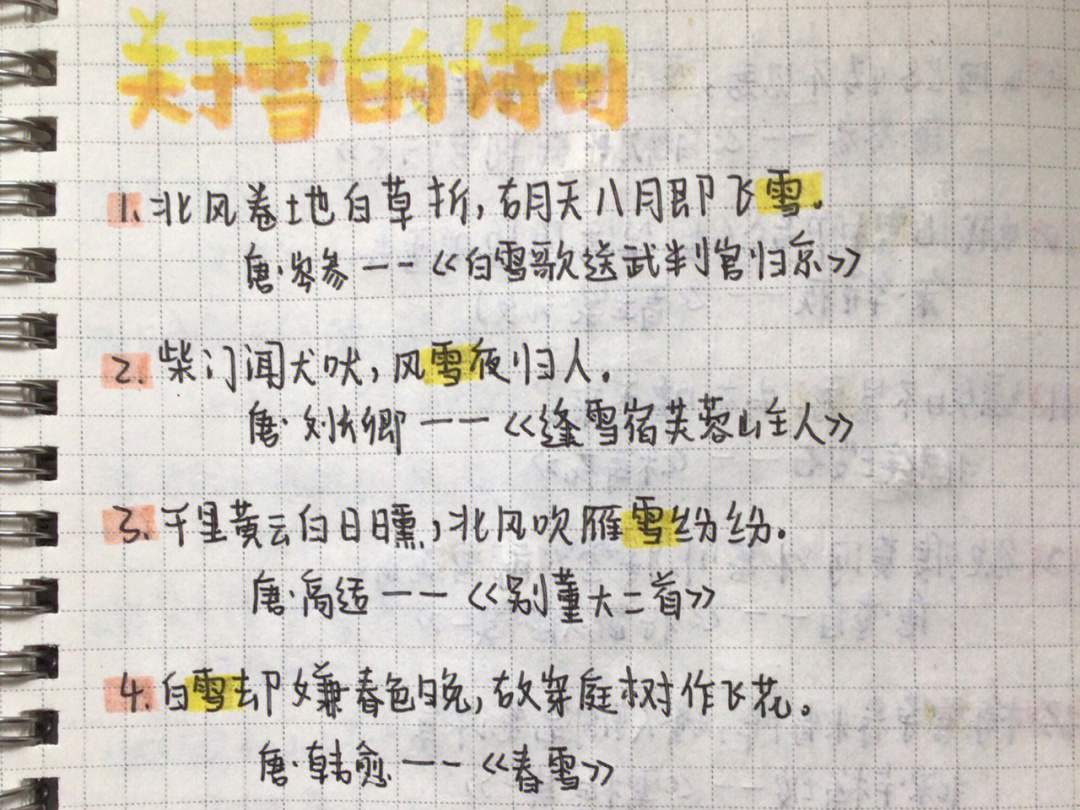 关于雪的诗句
1. 北风卷土地白草折，胡天八月即飞雪。
唐·岑参 一一《白雪歌送武判官归京》
2. 柴门闻犬吠，风雪夜归人。
唐·刘长卿 一一《逢雪宿芙蓉山主人》
3. 千里黄云白日曛，北风吹雁雪纷纷。
唐·高适 一一《别董大二首》
4. 白雪却嫌春色晚，故穿庭树作飞花。
唐·韩愈 一一《春雪》